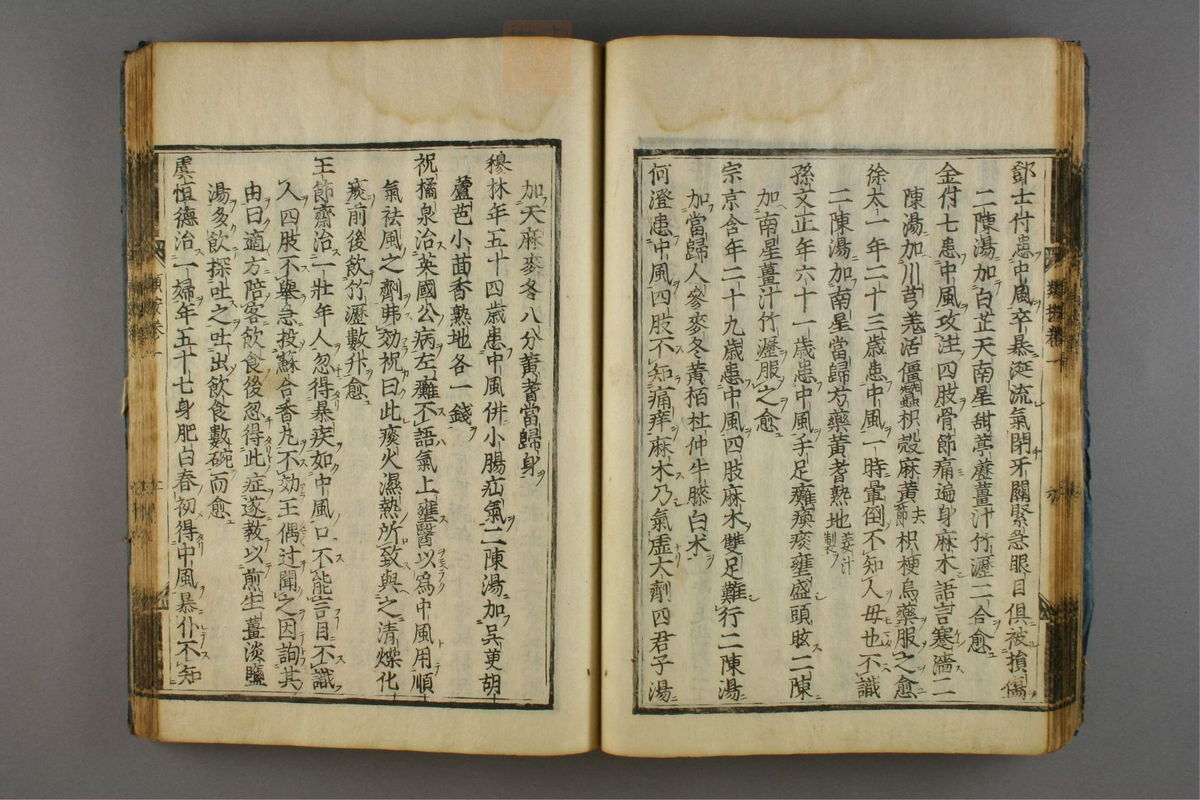 鄧士付患中風卒暴涎流氣閉牙關緊急眼目俱被損傷
二陳湯加白芷天南星甜葶藶薑汁竹瀝二合愈
金付七患中風攻注四肢骨節痛遍身麻木語言蹇澁二
陳湯加川芎羗活僵蠶枳殼麻黄去節枳梗烏藥服之愈
徐太一年二十三歳患中風一時暈倒不知人毋也不識
二陳湯加南星當歸芍藥黄耆熟地姜汁製
孫文正年六十一歳患中風手足癱瘓痰壅盛頭眩二陳
加南星薑汁竹瀝服之愈
宗京含年二十九歳患中風四肢麻木雙足難行二陳湯
加當歸人參麥冬黄栢杜仲牛膝白朮
何澄患中風四肢不知痛痒麻木乃氣虚大劑四君子湯
加天麻麥冬八分黄耆當歸身
穆林年五十四歳患中風併小腸疝氣二陳湯加呉茰胡
蘆芭小茴香熟地各一錢
祝橘泉治英國公病左癱不語氣上壅醫以為中風用順
氣祛風之劑弗効祝曰此痰火濕熱所致與之清燥化
痰前後飲竹瀝數升愈
王節齋治一壯年人忽得暴疾如中風口不能言目不識
人四肢不舉急投蘇合香丸不効王偶过聞之因詢其
由曰適方陪客飲食後忽得此症遂教以煎生薑淡鹽
湯多飲探吐之吐出飲食數碗而愈
虞恒德治一婦年五十七身肥白春初得中風暴仆不知